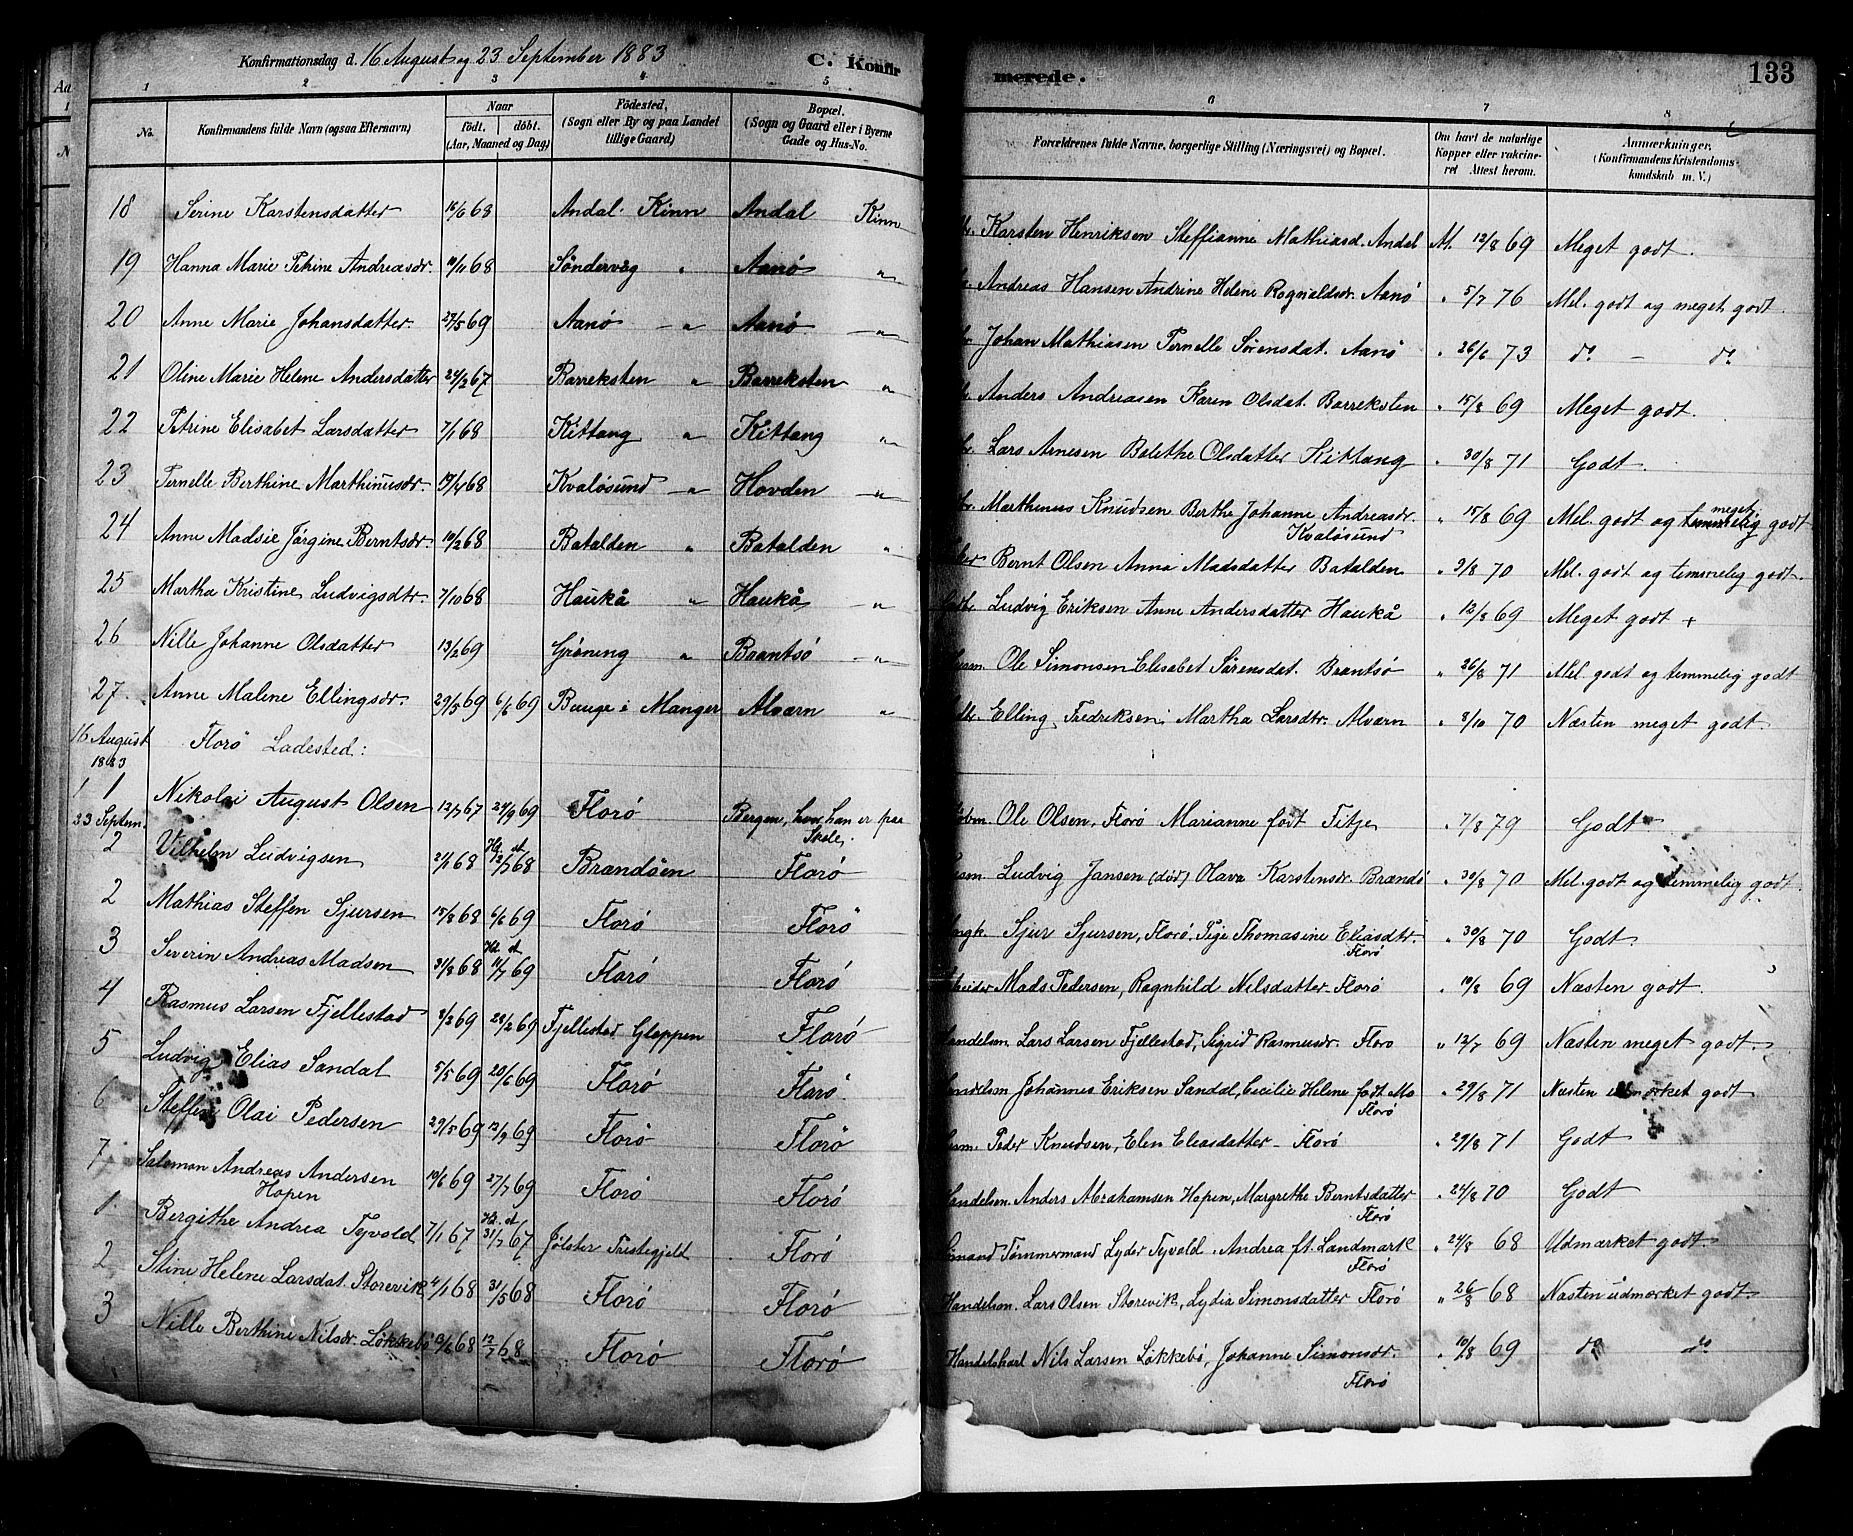 Konfirmationsdag d. 16 August og 23 September 1883 C. Konfirmerede. 133
1 2 3 4 5 6 7 8
No. Konfirmandens fulde Navn (ogsaa Efternavn) Naar født, døbt. (Aar, Maaned og Dag) Fødested, (Sogn eller By og paa Landet tillige Gaard) Bopæl. (Sogn og Gaard eller i Byerne Gade og Hus-No. Forældrenes fulde Navne, borgerlige Stilling (Næringsvei) og Bopæl. Om havt de naturlige Kopper eller vakcineret Attest herom. Anmerkninger. (Konfirmandens Kristendomskundskab m. V.)
18 Serine Karstensdatter 16/6 68 Andal Kinn Andal Kinn Karsten Henriksen Steffianne Mathiasd. Andal At. 12/8 69 Meget godt.
19 Hanna Marie Petrine Andreasdr. 10/11 68 Søndervåg " Aanø " Andreas Hansen Andrine Helene Rognaldsdr. Aanø " 5/7 76 Mel. godt og meget godt.
20 Anne Marie Johansdatter. 27/5 69 Aanø — " Aanø — " Johan Mathiasen Pernelle Sørensdat. Aanø " 26/6 73 do — do
21 Oline Marie Helene Andersdatter 24/2 67 Barreksten " Barreksten " Anders Andreasen Karen Olsdat. Barreksten " 15/8 69 Meget godt.
22 Petrine Elisabet Larsdatter 7/1 68 Kittang " Kittang " Lars Arnesen Balethe Olsdatter Kittang " 30/8 71 Godt
23 Pernelle Berthine Marthinusdr. 19/4 68 Kvaløsund — " Hovden — " Marthinus Knudsen Berthe Johanne Andreasdr. Kvaløsund " 15/8 69 Mel. godt og temmelig meget godt
24 Anne Madsie Jørgine Berntsdr. 10/2 68 Batalden " Batalden " Bernt Olsen Anna Madsdatter Batalden " 2/8 70 Mel. godt og temmelig godt.
25 Martha Kristine Ludvigsdtr. 7/10 68 Haukå " Haukå — " Ludvig Eriksen Anne Andersdatter Haukå " 12/8 69 Meget godt +
26 Nille Johanne Olsdatter 13/2 69 Grøning " Brantsø — " Ole Simonsen Elisabet Sørensdat. Brantsø " 26/8 71 Mel. godt og temmelig godt
27. Anne Malene Ellingsdr. 29/5 69 6/6 69 Bauge i Manger Alværn " Elling Fredriksen Martha Larsdtr. Alværn " 8/10 70 Næsten meget godt.
16 August 1883 Florø Ladested:
1 1 Nikolai August Olsen 12/7 67 24/9 69 Florø Bergen, hvor han er paa Skole. Ole Olsen, Florø Marianne født Titje " 7/8 79 Godt
23 Septem.
2 Vilhelm Ludvigsen 21/1 68 Hd. dt 12/7 68 Brandsøen Florø Ludvig Jansen (død) Olava Karstensdr. Brandsø " 30/8 70 Mel. godt og temmelig godt.
2 Mathias Steffen Sjursen 15/8 68 6/6 69 Florø Florø Sjur Sjursen, Florø, Pige Thomasine Eliasdtr. Florø " 30/8 70 Godt.
3 Severin Andreas Madsen 31/8 68 Hd. dt 11/7 69 Florø Florø Mads Pedersen, Ragnhild Nilsdatter Florø " 10/8 69 Næsten godt.
4 Rasmus Larsen Fjellestad 8/2 69 28/2 69 Fjellestad Gloppen Florø Handelsm. Lars Larsen Fjellestad, Sigrid Rasmusdr. Florø " 12/7 69 Næsten meget godt.
5 Ludvig Elias Sandal 5/5 69 20/6 69 Florø Florø. Handelsm Johannes Eriksen Sandal, Cecilie Helene født Mo Florø " 29/8 71 Næsten udmærket godt
6 Steffen Olai Pedersen 29/5 69 12/9 69 Florø Florø Peder Knudsen, Elen Eliasdatter — Florø " 29/8 71 Godt
7 Salomon Andreas Andersen Hopen 19/6 69 27/7 69 Florø Florø Handelsm. Anders Abrahamsen Hopen, Margrethe Berntsdatter Florø " 24/8 70 Godt
1. Bergithe Andrea Tyvold 7/1 67 Hd. dt 31/7 67 Jølster Prestegjeld Florø Tømmermand Lyder Tyvold. Andrea ft. Landmark Florø " 24/8 68 Udmærket godt.
2 Stine Helene Larsdat. Storevik 4/1 68 31/5 68 Florø Florø Handelsm. Lars Olsen Storevik, Lydia Simonsdatter Florø " 26/8 68 Næsten udmærket godt
3 Nille Berthine Nilsdr. Løkkebø 12/6 68 12/7 68 Florø Florø Handelskarl Nils Larsen Løkkebø, Johanne Simonsdr. Florø " 10/8 69 do do